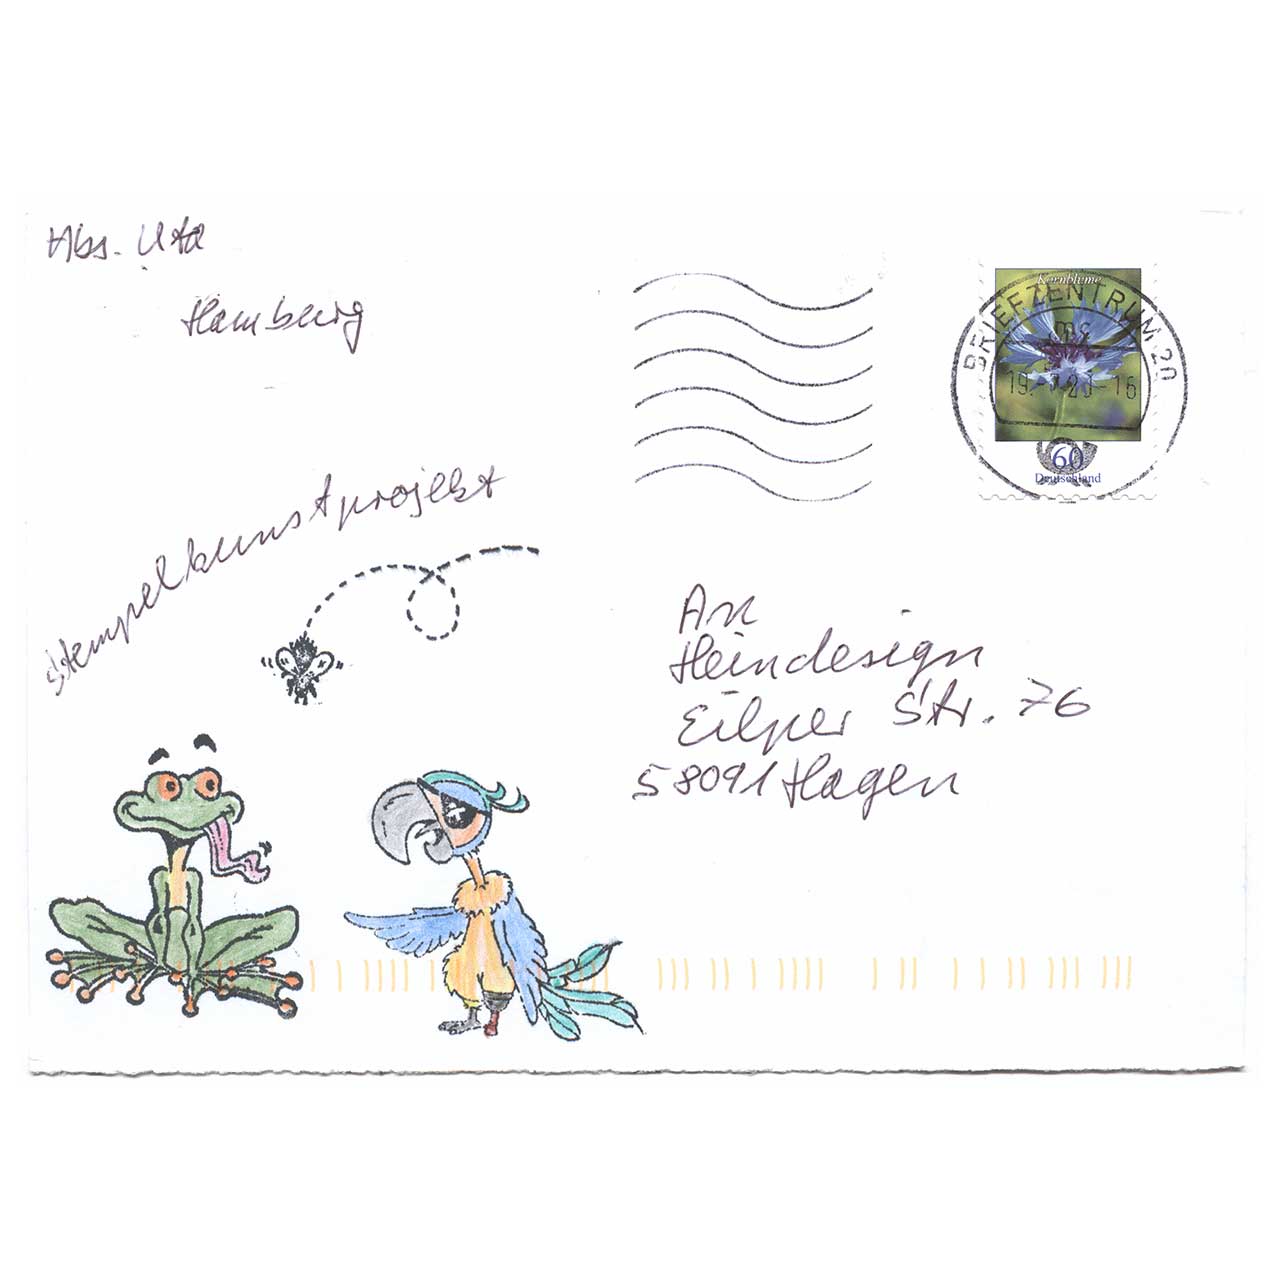 Abs. Uta
Hamburg
Kornblume
BRIEFZENTRUM 20
mc
19. 20-16
60
Deutschland
Stempelkunstprojekt
An
Heindesign
Eilper Str. 76
58091 Hagen